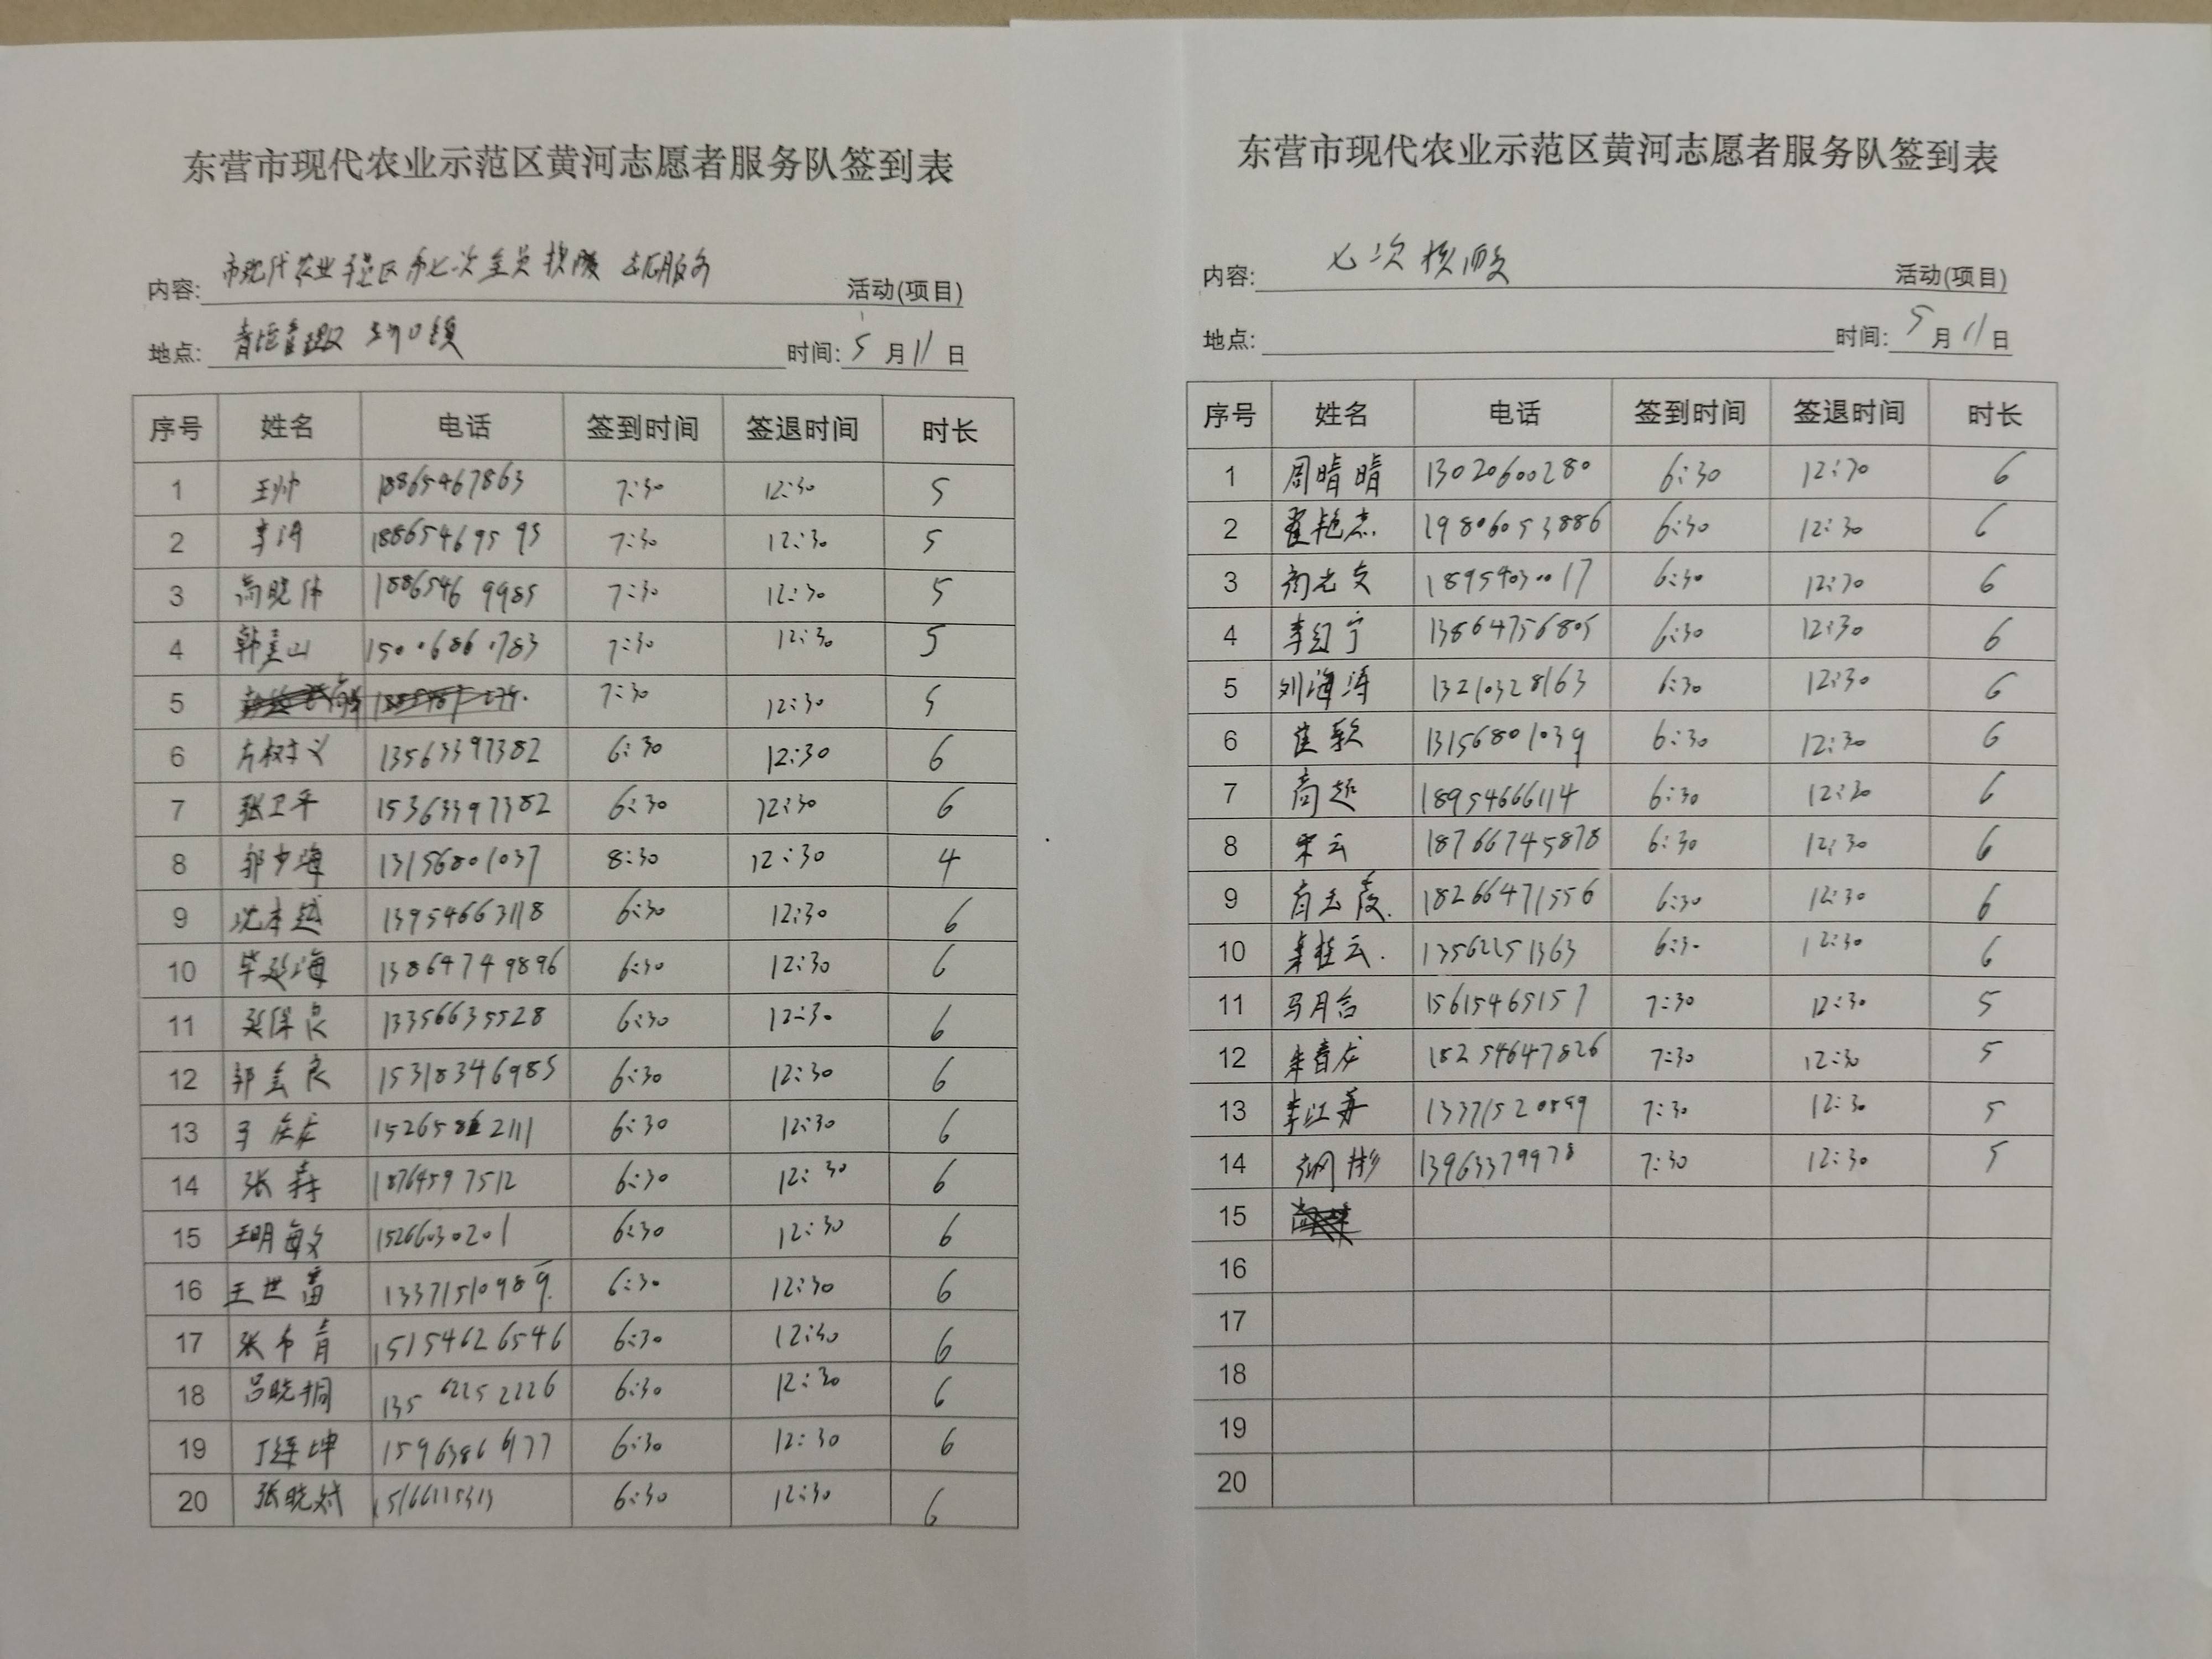 东营市现代农业示范区黄河志愿者服务队签到表
内容: 市现代农业示范区第七次全员核酸 志愿服务 活动(项目)
地点: 时间: 5 月 11 日
序号 姓名 电话 签到时间 签退时间 时长
1 王帅 18865467863 7:30 12:30 5
2 李涛 18865469595 7:30 12:30 5
3 高晓伟 18865469985 7:30 12:30 5
4 15006860783 7:30 12:30 5
5 7:30 12:30 5
6 13563397382 6:30 12:30 6
7 张卫平 15363397382 6:30 12:30 6
8 郭少海 13156801037 8:30 12:30 4
9 沈本超 13954663118 6:30 12:30 6
10 毕延海 13864749896 6:30 12:30 6
11 13356635528 6:30 12:30 6
12 15318346985 6:30 12:30 6
13 6:30 12:30 6
14 张森 18764597512 6:30 12:30 6
15 王明敏 1526630201 6:30 12:30 6
16 王世富 13371510989 6:30 12:30 6
17 张希青 15154626546 6:30 12:30 6
18 吕晓桐 13562252226 6:30 12:30 6
19 丁连坤 15963866177 6:30 12:30 6
20 张晓斌 6:30 12:30 6
东营市现代农业示范区黄河志愿者服务队签到表
内容: 七次核酸 活动(项目)
地点: 时间: 5 月 11 日
序号 姓名 电话 签到时间 签退时间 时长
1 周晴晴 13020600280 6:30 12:30 6
2 翟艳杰 19806053886 6:30 12:30 6
3 18954030017 6:30 12:30 6
4 李红宁 13864756805 6:30 12:30 6
5 刘海涛 13210328163 6:30 12:30 6
6 崔歌 13156801039 6:30 12:30 6
7 高超 18954666114 6:30 12:30 6
8 宋云 18766745878 6:30 12:30 6
9 18266471556 6:30 12:30 6
10 13562251363 6:30 12:30 6
11 马月台 15615465157 7:30 12:30 5
12 18254647826 7:30 12:30 5
13 李江寿 13371520899 7:30 12:30 5
14 13963379978 7:30 12:30 5
15
16
17
18
19
20